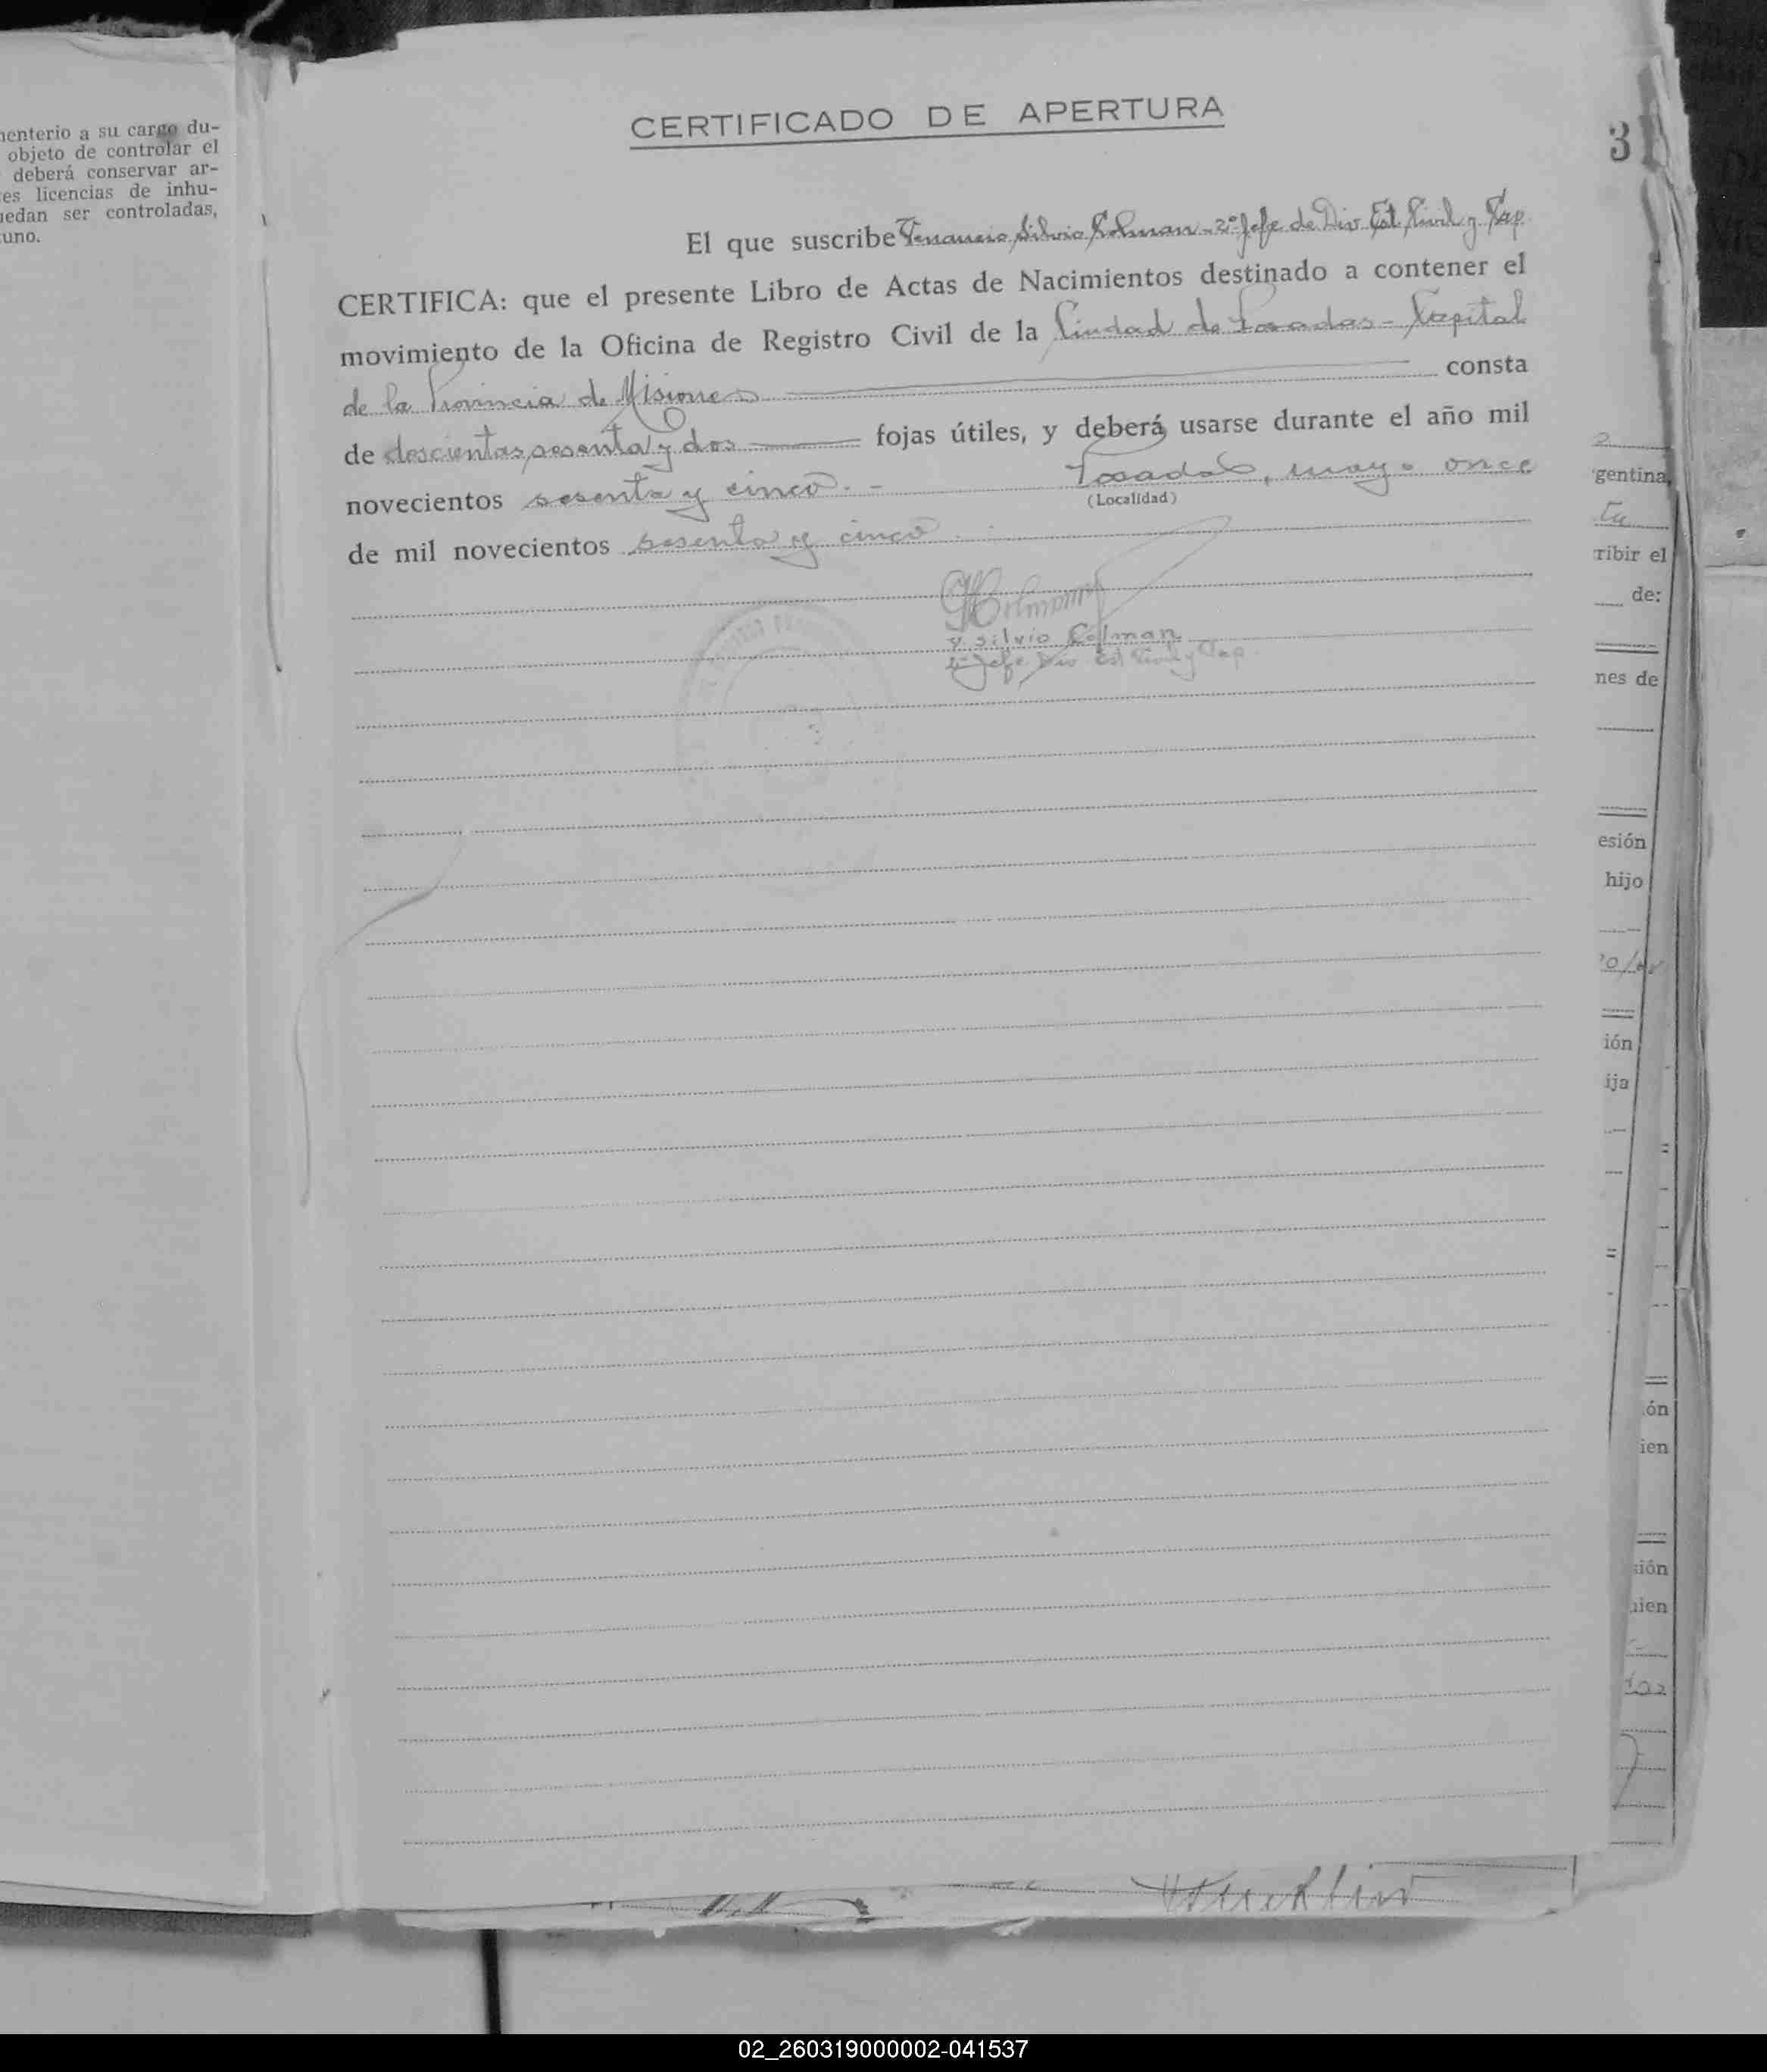 menterio a su cargo du-
objeto de controlar el
deberá conservar ar-
es licencias de inhu-
uedan ser controladas,
uno.
CERTIFICADO DE APERTURA
3
El que suscribe Venancio Silvio Colman - 2º Jefe de Div. Est. Civil y Cap.
CERTIFICA: que el presente Libro de Actas de Nacimientos destinado a contener el
movimiento de la Oficina de Registro Civil de la Ciudad de Posadas - Capital
de la Provincia de Misiones consta
de doscientas sesenta y dos fojas útiles, y deberá usarse durante el año mil
novecientos sesenta y cinco. - Posadas, mayo once
(Localidad)
de mil novecientos sesenta y cinco.
V. Silvio Colman
2º Jefe Div Est Civil y Cap.
gentina
ribir el
de:
nes de
esión
hijo
ión
ija
ón
ien
sión
uien
02_260319000002-041537